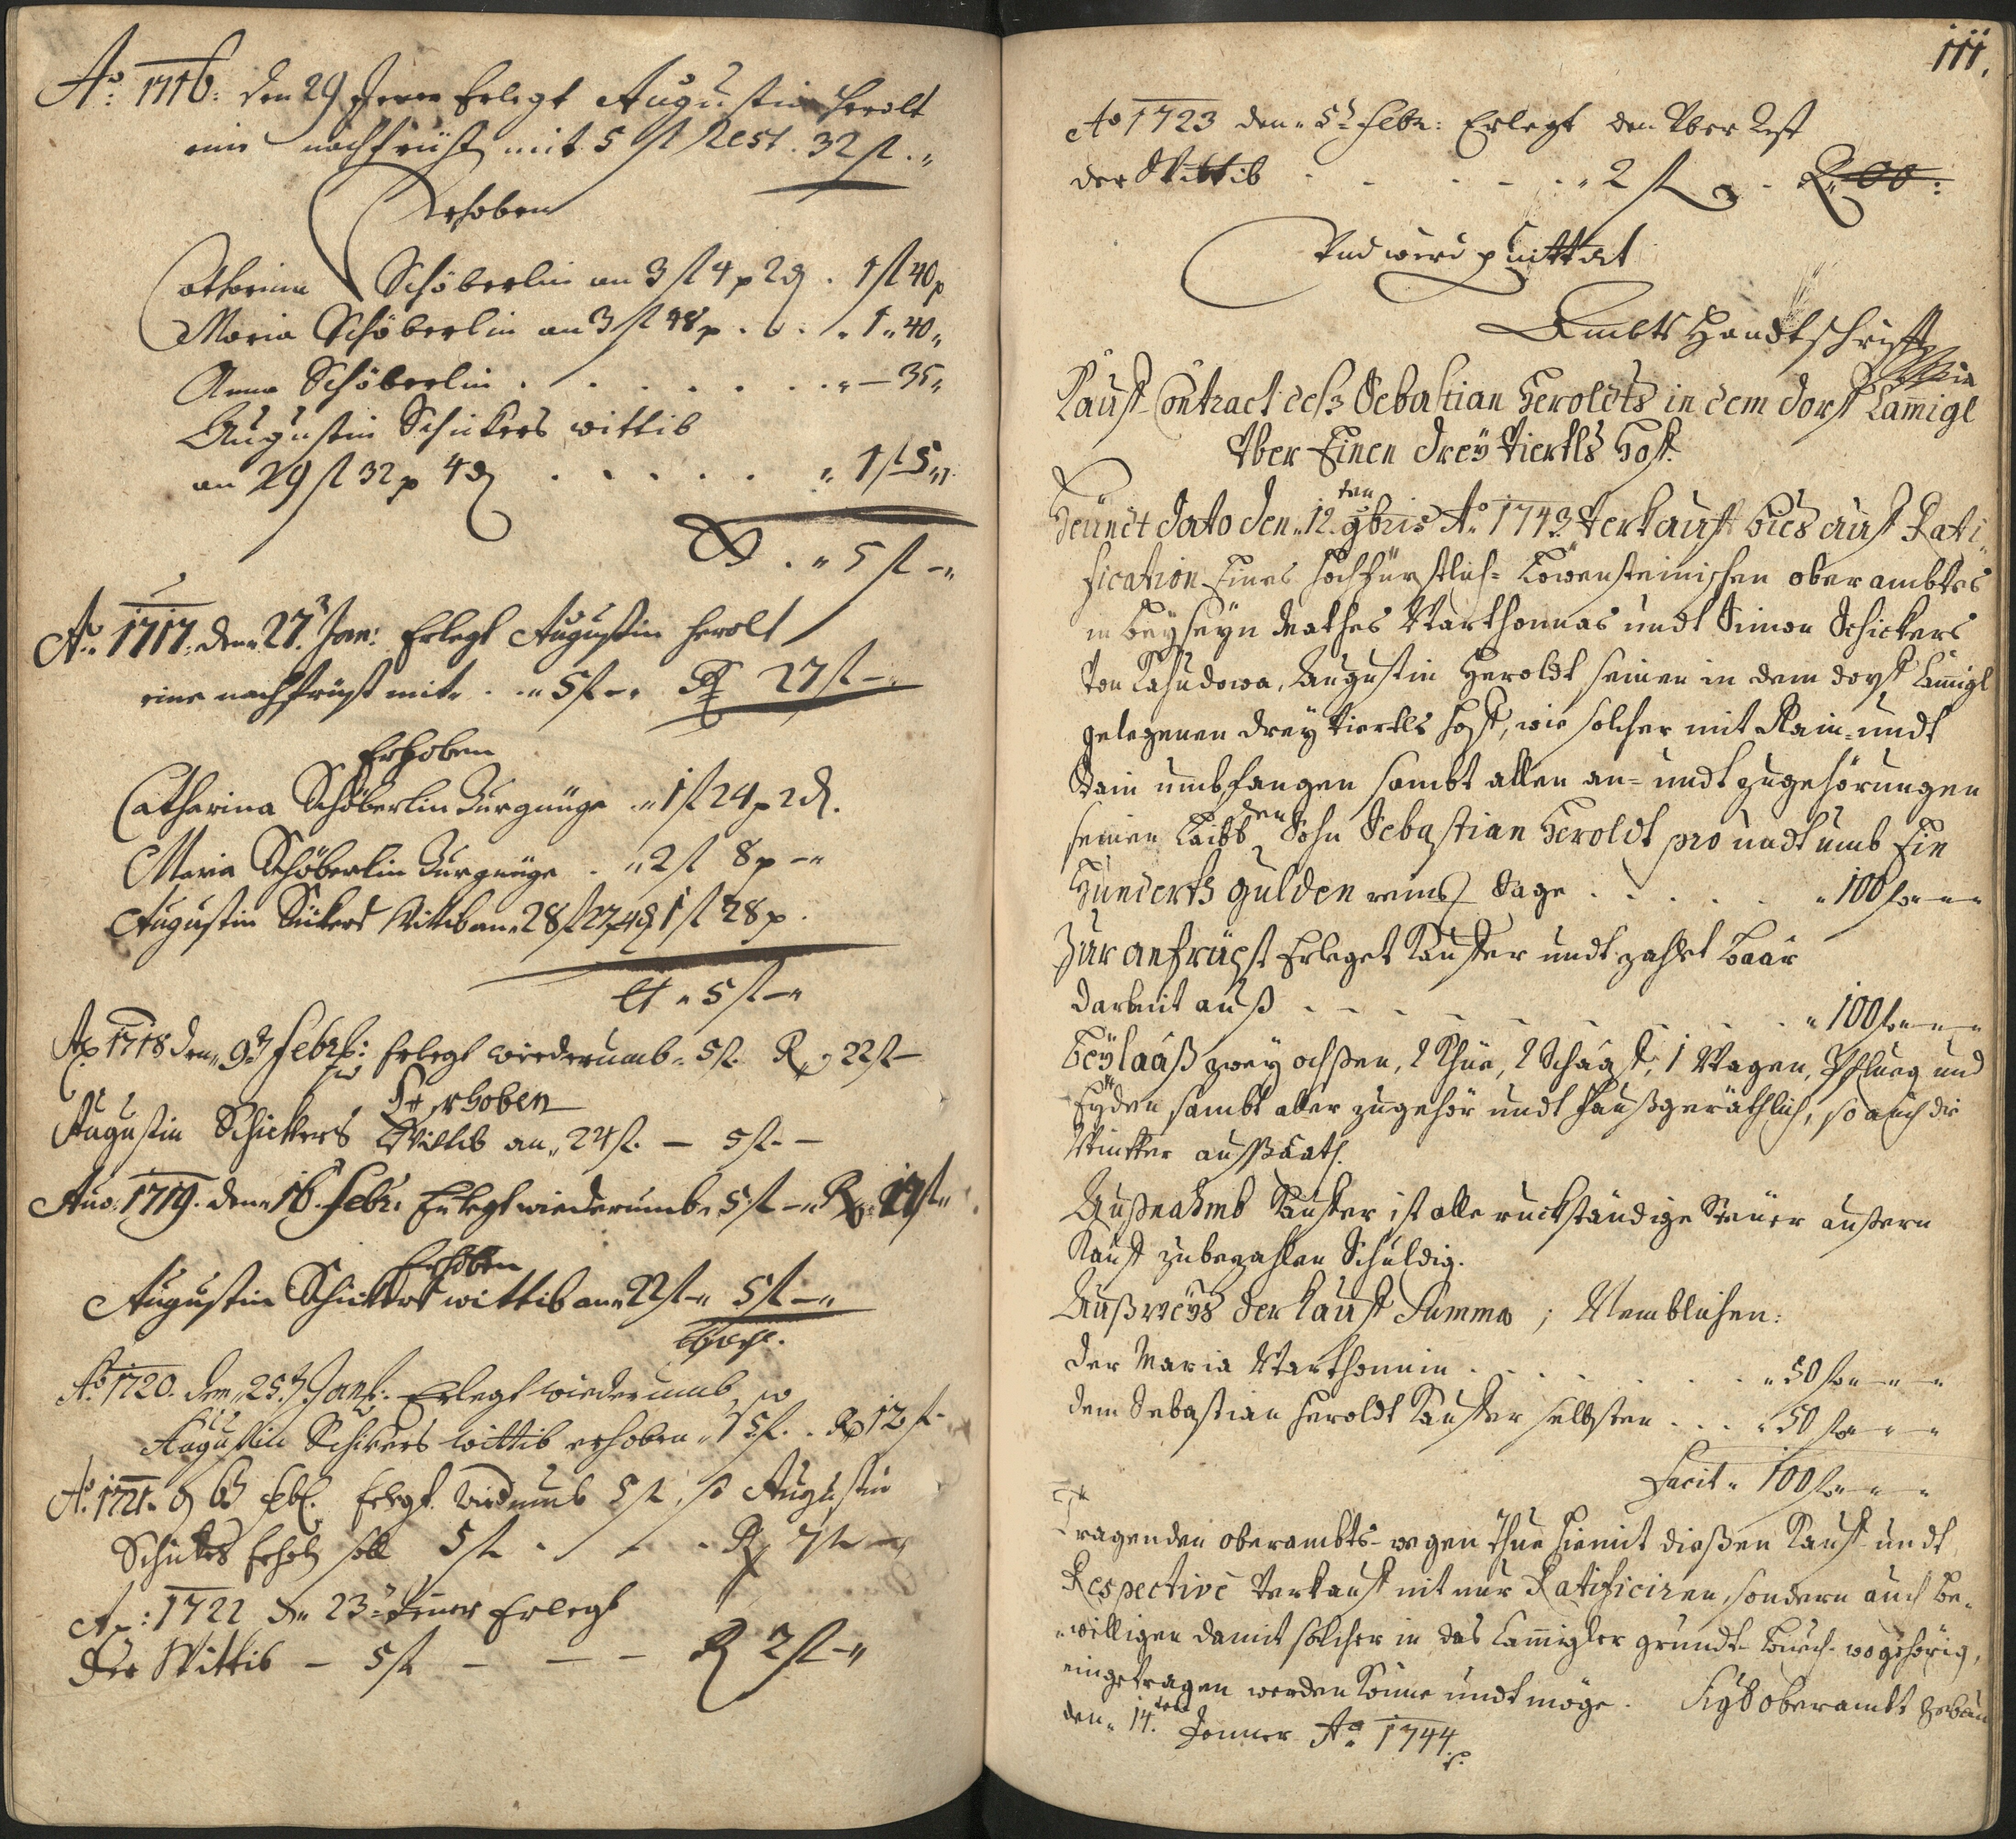 Ao: 1716: den 29 Jener Erlegt Augustin Herolt
eine nachfrüst mit 5 fl Rest. 32 fl.
Erhoben
Catharina Schöberlin an 3 fl 4 p 2 d. 1 fl 40 p
Maria Schöberlin an 3 fl 48 p . . . 1 " 40 "
Anna Schöberlin . . . . . . . " — 35 "
Augustin Schickers wittib
an 29 fl 32 p 4 d . . . . . " 1 fl 5 "
. " 5 fl — "
Ao: 1717. den 27. Jan: Erlegt Augustin Herolt
eine nachfrüst mit . . " 5 fl — " R 27 fl — "
Erhoben
Catharina Schöberlin Zurgnüge " 1 fl 24 p 2 d.
Maria Schöberlin Zurgnüge . " 2 fl 8 p — "
Augustin Schikers Wittib an 28 fl 27 p 4 d 1 fl 28 p.
" 5 fl — "
Ao 1718 den 9t Febr: Erlegt wiederumb " 5 fl. R 22 fl —
so
Erhoben
Augustin Schickers Wittib an " 24 fl. — 5 fl. —
Ano: 1719. den 16. Febr: Erlegt wiederumb " 5 fl — " R 17 fl "
Erhoben
Augustin Schickers wittib an " 22 fl — " 5 fl — "
Ao 1720. den 25t Jan: Erlegt wiederumb, so
Augustin Schikers wittib erhoben " 5 fl. . R 12 fl —
Ao. 1721 d 6t feb. Erlegt widerumb 5 fl, so Augustin
Schickers Erhebt soll 5 fl . . . R 7 fl —
Ao: 1722 dn 23t Jener Erlegt
der Wittib — 5 fl — — — R 2 fl — "
111.
Ao 1723 den " 5t febr: Erlegt den Vber Rest
der Wittib . . . . " 2 fl . R. 00:
Vnd wird quittirt
Ambts Handtschrifft
Kauff Contract deß Sebastian Heroldts in dem dorff Lam̄igl
Vber Einen drey Viertls Hoff.
Heündt dato den " 12.ten 9bris Ao 1743 Verkaufft bies auff Rati-
fication Eines hochfürstlich= Löwensteinischen oberambtes
in beyseyn Mathes Marthonnas undt Simon Schickers
Von Lahudowa, Augustin Heroldt seinen in dem dorff Lam̄igl
gelegenen drey Viertls Hoff, wie solcher mit Rain= undt
Stain umbfangen sambt allen an= undt zugehörungen
seinen Leibbden Sohn Sebastian Heroldt pro undt umb Ein
Hunderth gulden reins Sage . . . . . " 100 fl — " —
Zur anfrüst Erleget Kauffer undt zahlet baar
darmit auß . . . . . . . . " 100 fl — " —
Beylaaß zwey ochßen, 2 Khüe, 2 Schaaff, 1 Wagen, Pflueg und
Eyden sambt aller zugehör undt Haußgeräthlich, so auch die
Wintter aussaath.
Außnahmb Kauffer ist alle ruckständige Steüer aussern
Kauff zubezahlen Schuldig.
Außweys der Kauff Summa; Nemblichen:
der Maria Marthonnin . . . . . . " 50 fl — " —
dem Sebastian Heroldt Kauffer selbsten . . . " 50 fl — " —
Facit " 100 fl — " —
Tragenden oberambts= wegen thue hiemit dießen Kauff= undt
Respective Verkauff nit nur Ratificiren, sondern auch be=
willigen damit solcher in das Lam̄igler grundt= buech= wogehörig,
eingetragen werden könne undt möge. Sigl oberambt Zebau
den " 14.ten Jenner Ao 1744